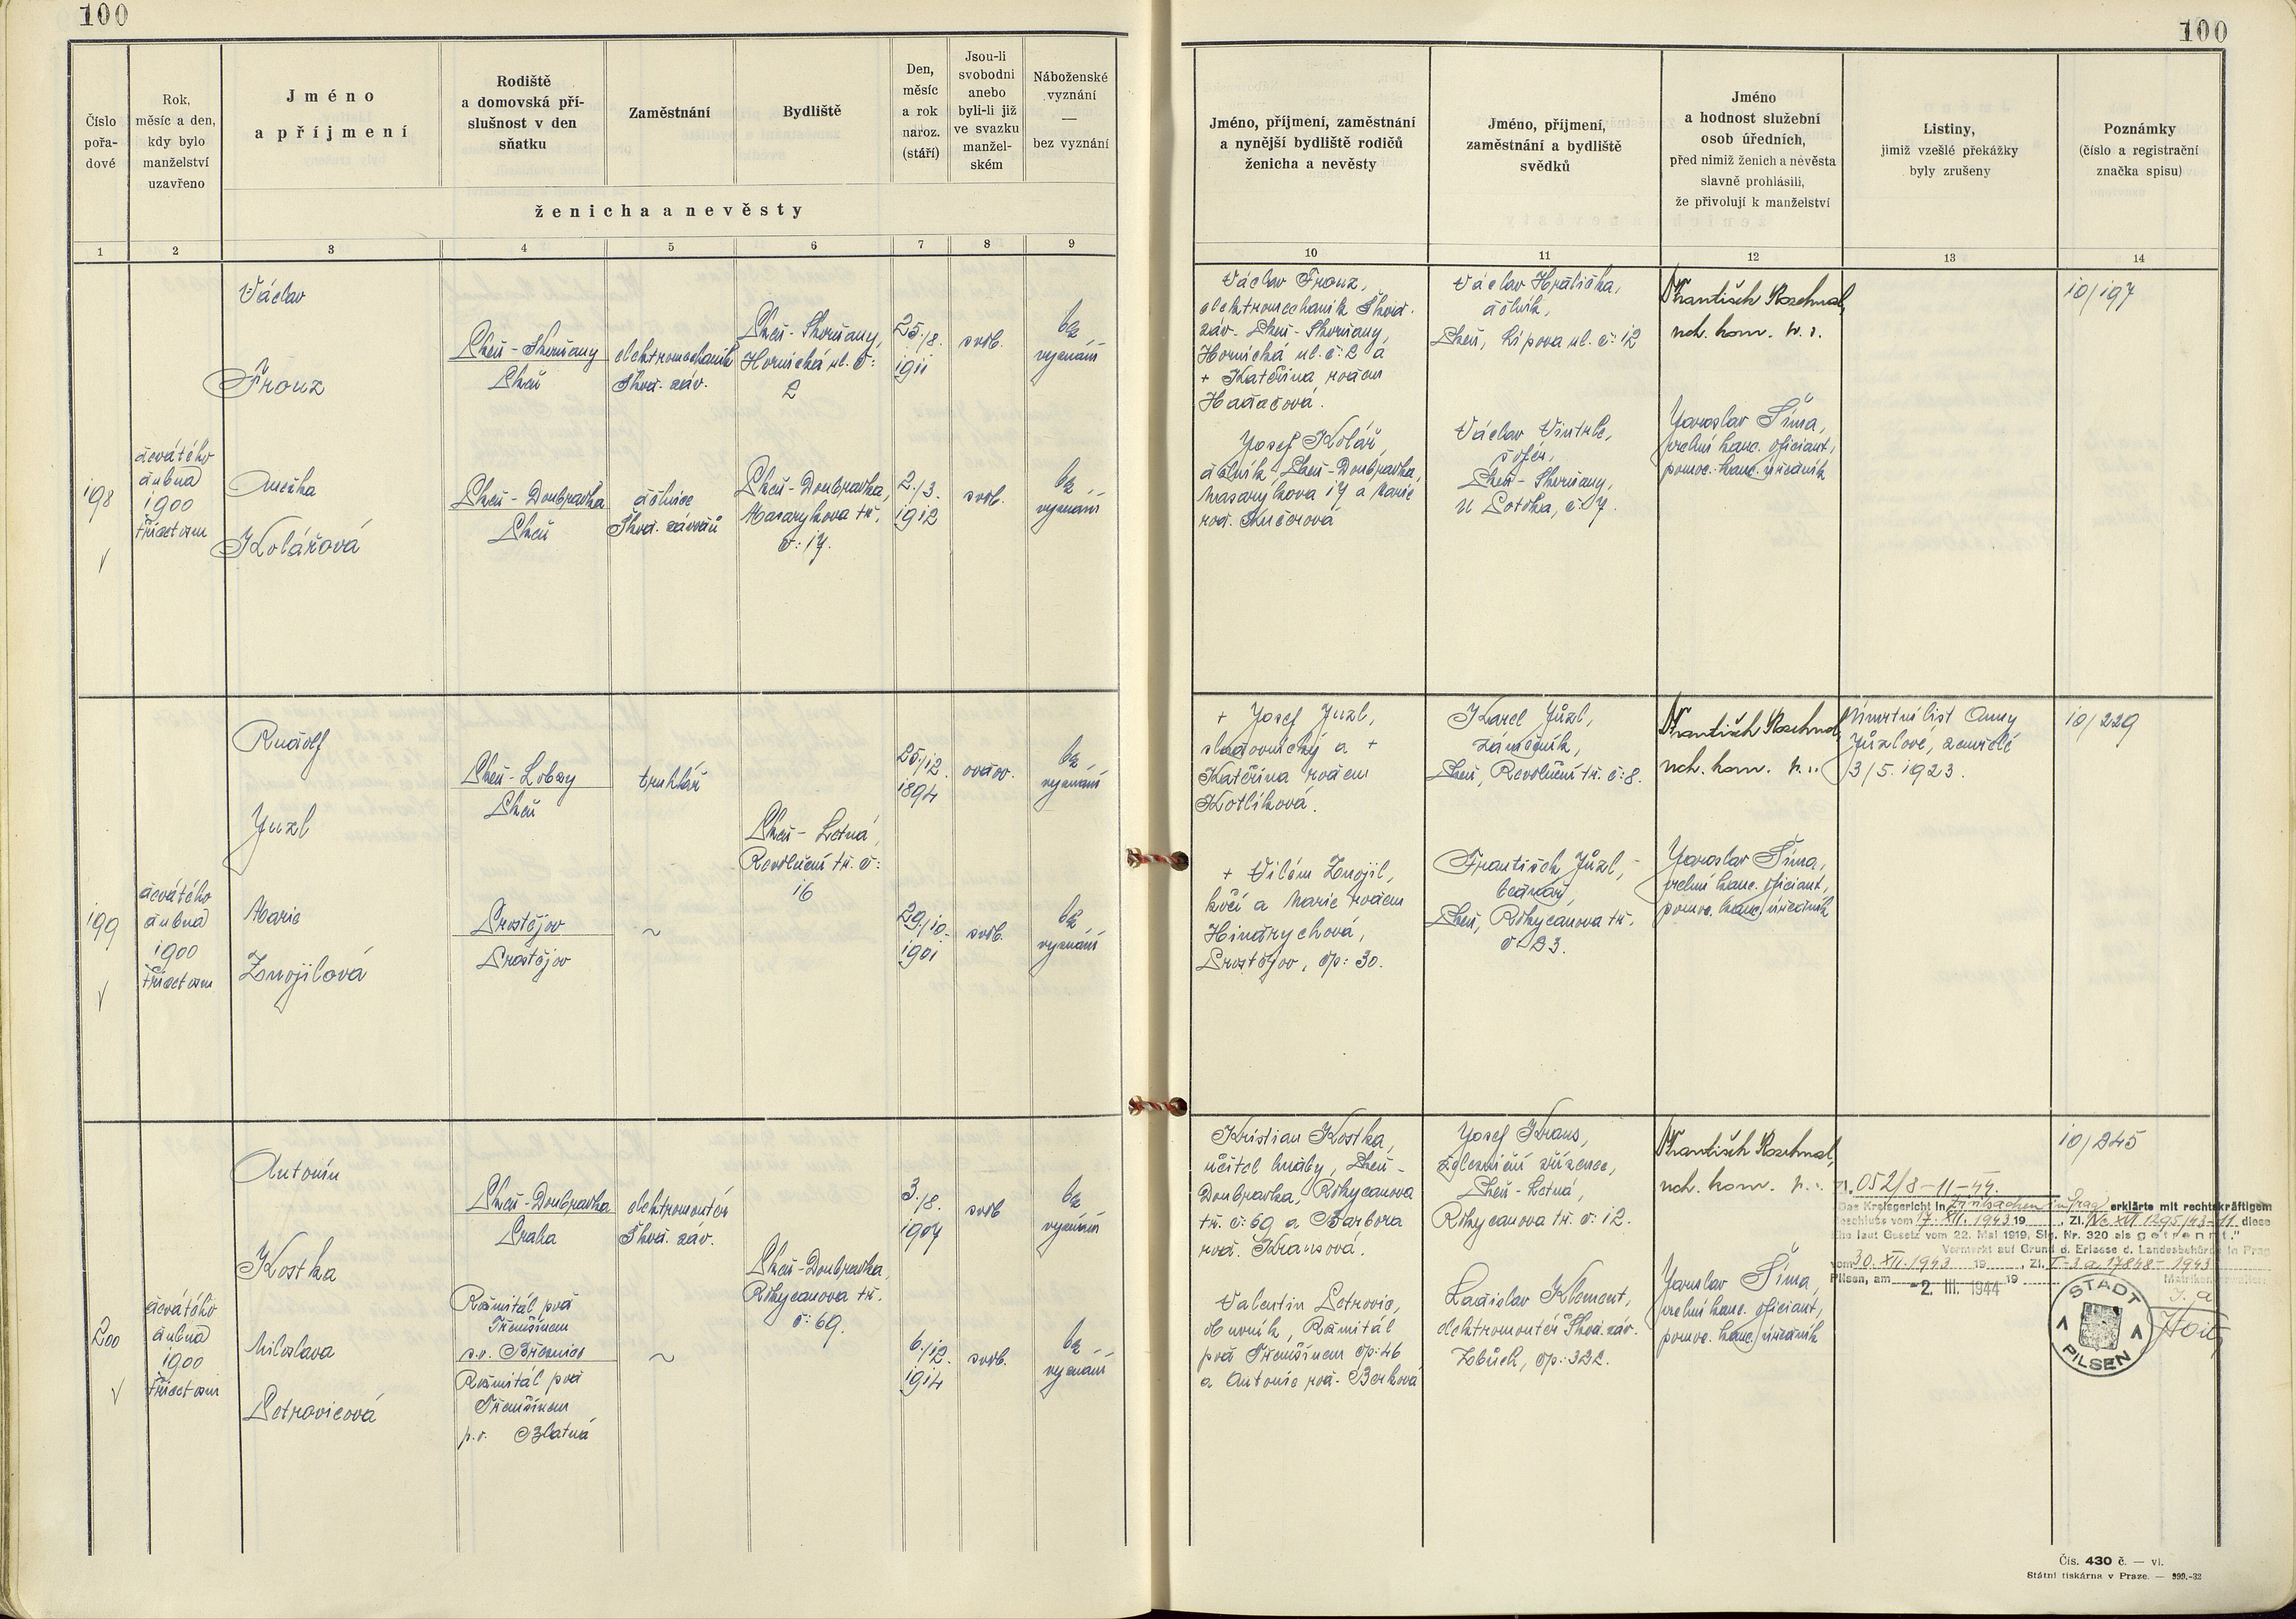 100
100
Číslo
pořa-
dové
Rok,
měsíc a den,
kdy bylo
manželství
uzavřeno
Jméno
a příjmení
Rodiště
a domovská pří-
slušnost v den
sňatku
Zaměstnání
Bydliště
Den,
měsíc
a rok
naroz.
(stáří)
Jsou-li
svobodni
anebo
byli-li již
ve svazku
manžel-
ském
Náboženské
vyznání
—
bez vyznání
ženicha a nevěsty
Jméno, příjmení, zaměstnání
a nynější bydliště rodičů
ženicha a nevěsty
Jméno, příjmení,
zaměstnání a bydliště
svědků
Jméno
a hodnost služební
osob úředních,
před nimiž ženich a nevěsta
slavně prohlásili,
že přivolují k manželství
Listiny,
jimiž vzešlé překážky
byly zrušeny
Poznámky
(číslo a registrační
značka spisu)
1 2 3 4 5 6 7 8 9 10 11 12 13 14
198
devátého
dubna
1900
třicet osm
Václav
Franz
Plzeň - Skvrňany
Plzeň
elektromechanik
Škod. záv.
Plzeň - Skvrňany,
Hornická ul. č:
2
25./8.
1911
svob.
bez
vyznání
Anežka
Kolářová
Plzeň - Doubravka
Plzeň
dělnice
Škod. závodů
Plzeň - Doubravka,
Masarykova tř.
č: 17.
2./3.
1912
svob.
bez
vyznání
Václav Franz,
elektromechanik Škod.
záv. Plzeň - Skvrňany,
Hornická ul. č: 2 a
+ Kateřina rodem
Hadačová.
Josef Kolář,
dělník, Plzeň - Doubravka,
Masarykova 17 a Marie
rod. Kučerová
Václav Hrdlička,
dělník,
Plzeň, Lípova ul. č: 12
Václav Vintrle,
šofér,
Plzeň - Skvrňany,
U Potoka, č: 7.
František Rozehnal,
nch. kom. r. s.
Jaroslav Šíma,
vrchní kanc. oficiant,
pomoc. kanc. úředník
10/197
199
devátého
dubna
1900
třicet osm
Rudolf
Juzl
Plzeň - Lobzy
Plzeň
truhlář
25./12.
1894
ovdov.
bez
vyznání
Plzeň - Letná,
Revoluční tř. č:
16
Marie
Zavojilová
Prostějov
Prostějov
~
29./10.
1901
svob.
bez
vyznání
+ Josef Juzl,
sladovnický a +
Kateřina rodem
Kotlíková.
+ Vilém Znojil,
kočí a Marie rodem
Hindrychová,
Prostějov, čp: 30.
Karel Jůzl,
zámečník,
Plzeň, Revoluční tř. č: 8.
František Jůzl,
bednář,
Plzeň, Rokycanova tř.
č: 23.
František Rozehnal,
nch. kom. r. s.
Jaroslav Šíma,
vrchní kanc. oficiant,
pomoc. kanc. úředník
Úmrtní list Anny
Jůzlové, zemřelé
3/5. 1923.
10/229
200
devátého
dubna
1900
třicet osm
Antonín
Kostka
Plzeň - Doubravka
Praha
elektromontér
Škod. záv.
3./8.
1907
svob
bez
vyznání
Plzeň - Doubravka,
Rokycanova tř.
č: 69.
Miloslava
Petrovicová
Rožmitál pod
Třemšínem
s.o. Březnice
Rožmitál pod
Třemšínem
p.o. Blatná
~
6./12.
1914
svob.
bez
vyznání
Kristian Kostka,
učitel hudby, Plzeň -
Doubravka, Rokycanova
tř. č: 69 a Barbora
rod. Krausová.
Valentin Petrovic,
obuvník, Rožmitál
pod Třemšínem čp: 46
a Antonie rod. Berková
Josef Kraus,
železniční zřízenec,
Plzeň - Letná,
Rokycanova tř. č: 12.
Ladislav Klement,
elektromontér Škod. záv.
Zbůch, čp: 322.
František Rozehnal,
nch. kom. r. s.
Jaroslav Šíma,
vrchní kanc. oficiant,
pomoc. kanc. úředník
10/245
Zl. 052/8-11-44.
Das Kreisgericht in Prag erklärte mit rechtskräftigem
Beschluss vom 17. XII. 1943 19 , Zl. Nc XII 1295/43-11 diese
Ehe laut Gesetz vom 22. Mai 1919, Slg. Nr. 320 als getrennt."
Vermerkt auf Grund d. Erlasse d. Landesbehörde in Prag
vom 30. XII. 1943 19 , Zl. I-3a 17848-1943
Pilsen, am -2. III. 1944 19
STADT
PILSEN
Čís. 430 č. — vl.
Státní tiskárna v Praze. — 999.-32